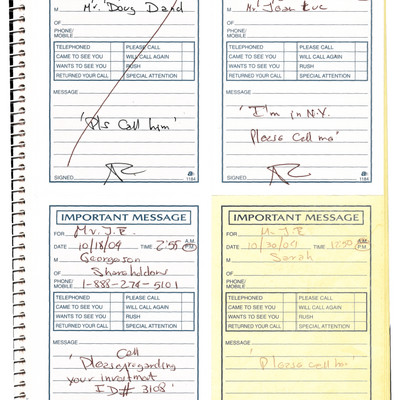 M Mr. Doug Band
OF
PHONE/
MOBILE
TELEPHONED PLEASE CALL
CAME TO SEE YOU WILL CALL AGAIN
WANTS TO SEE YOU RUSH
RETURNED YOUR CALL SPECIAL ATTENTION
MESSAGE
"Pls call him"
SIGNED 1184
M Mr. Jean Luc
OF
PHONE/
MOBILE
TELEPHONED PLEASE CALL
CAME TO SEE YOU WILL CALL AGAIN
WANTS TO SEE YOU RUSH
RETURNED YOUR CALL SPECIAL ATTENTION
MESSAGE
"I'm in N.Y.
Please call me"
SIGNED 1184
IMPORTANT MESSAGE
FOR Mr. J.E.
DATE 10/18/04 TIME 2:55 A.M. P.M.
M Georgeson
OF Shareholders
PHONE/
MOBILE 1-888-274-5101
TELEPHONED PLEASE CALL
CAME TO SEE YOU WILL CALL AGAIN
WANTS TO SEE YOU RUSH
RETURNED YOUR CALL SPECIAL ATTENTION
MESSAGE
Call
"Please regarding
your investment
ID# 3108"
IMPORTANT MESSAGE
FOR J.E.
DATE 10/30/04 TIME 12:50 A.M. P.M.
M Sarah
OF
PHONE/
MOBILE
TELEPHONED PLEASE CALL
CAME TO SEE YOU WILL CALL AGAIN
WANTS TO SEE YOU RUSH
RETURNED YOUR CALL SPECIAL ATTENTION
MESSAGE
"Please call her"